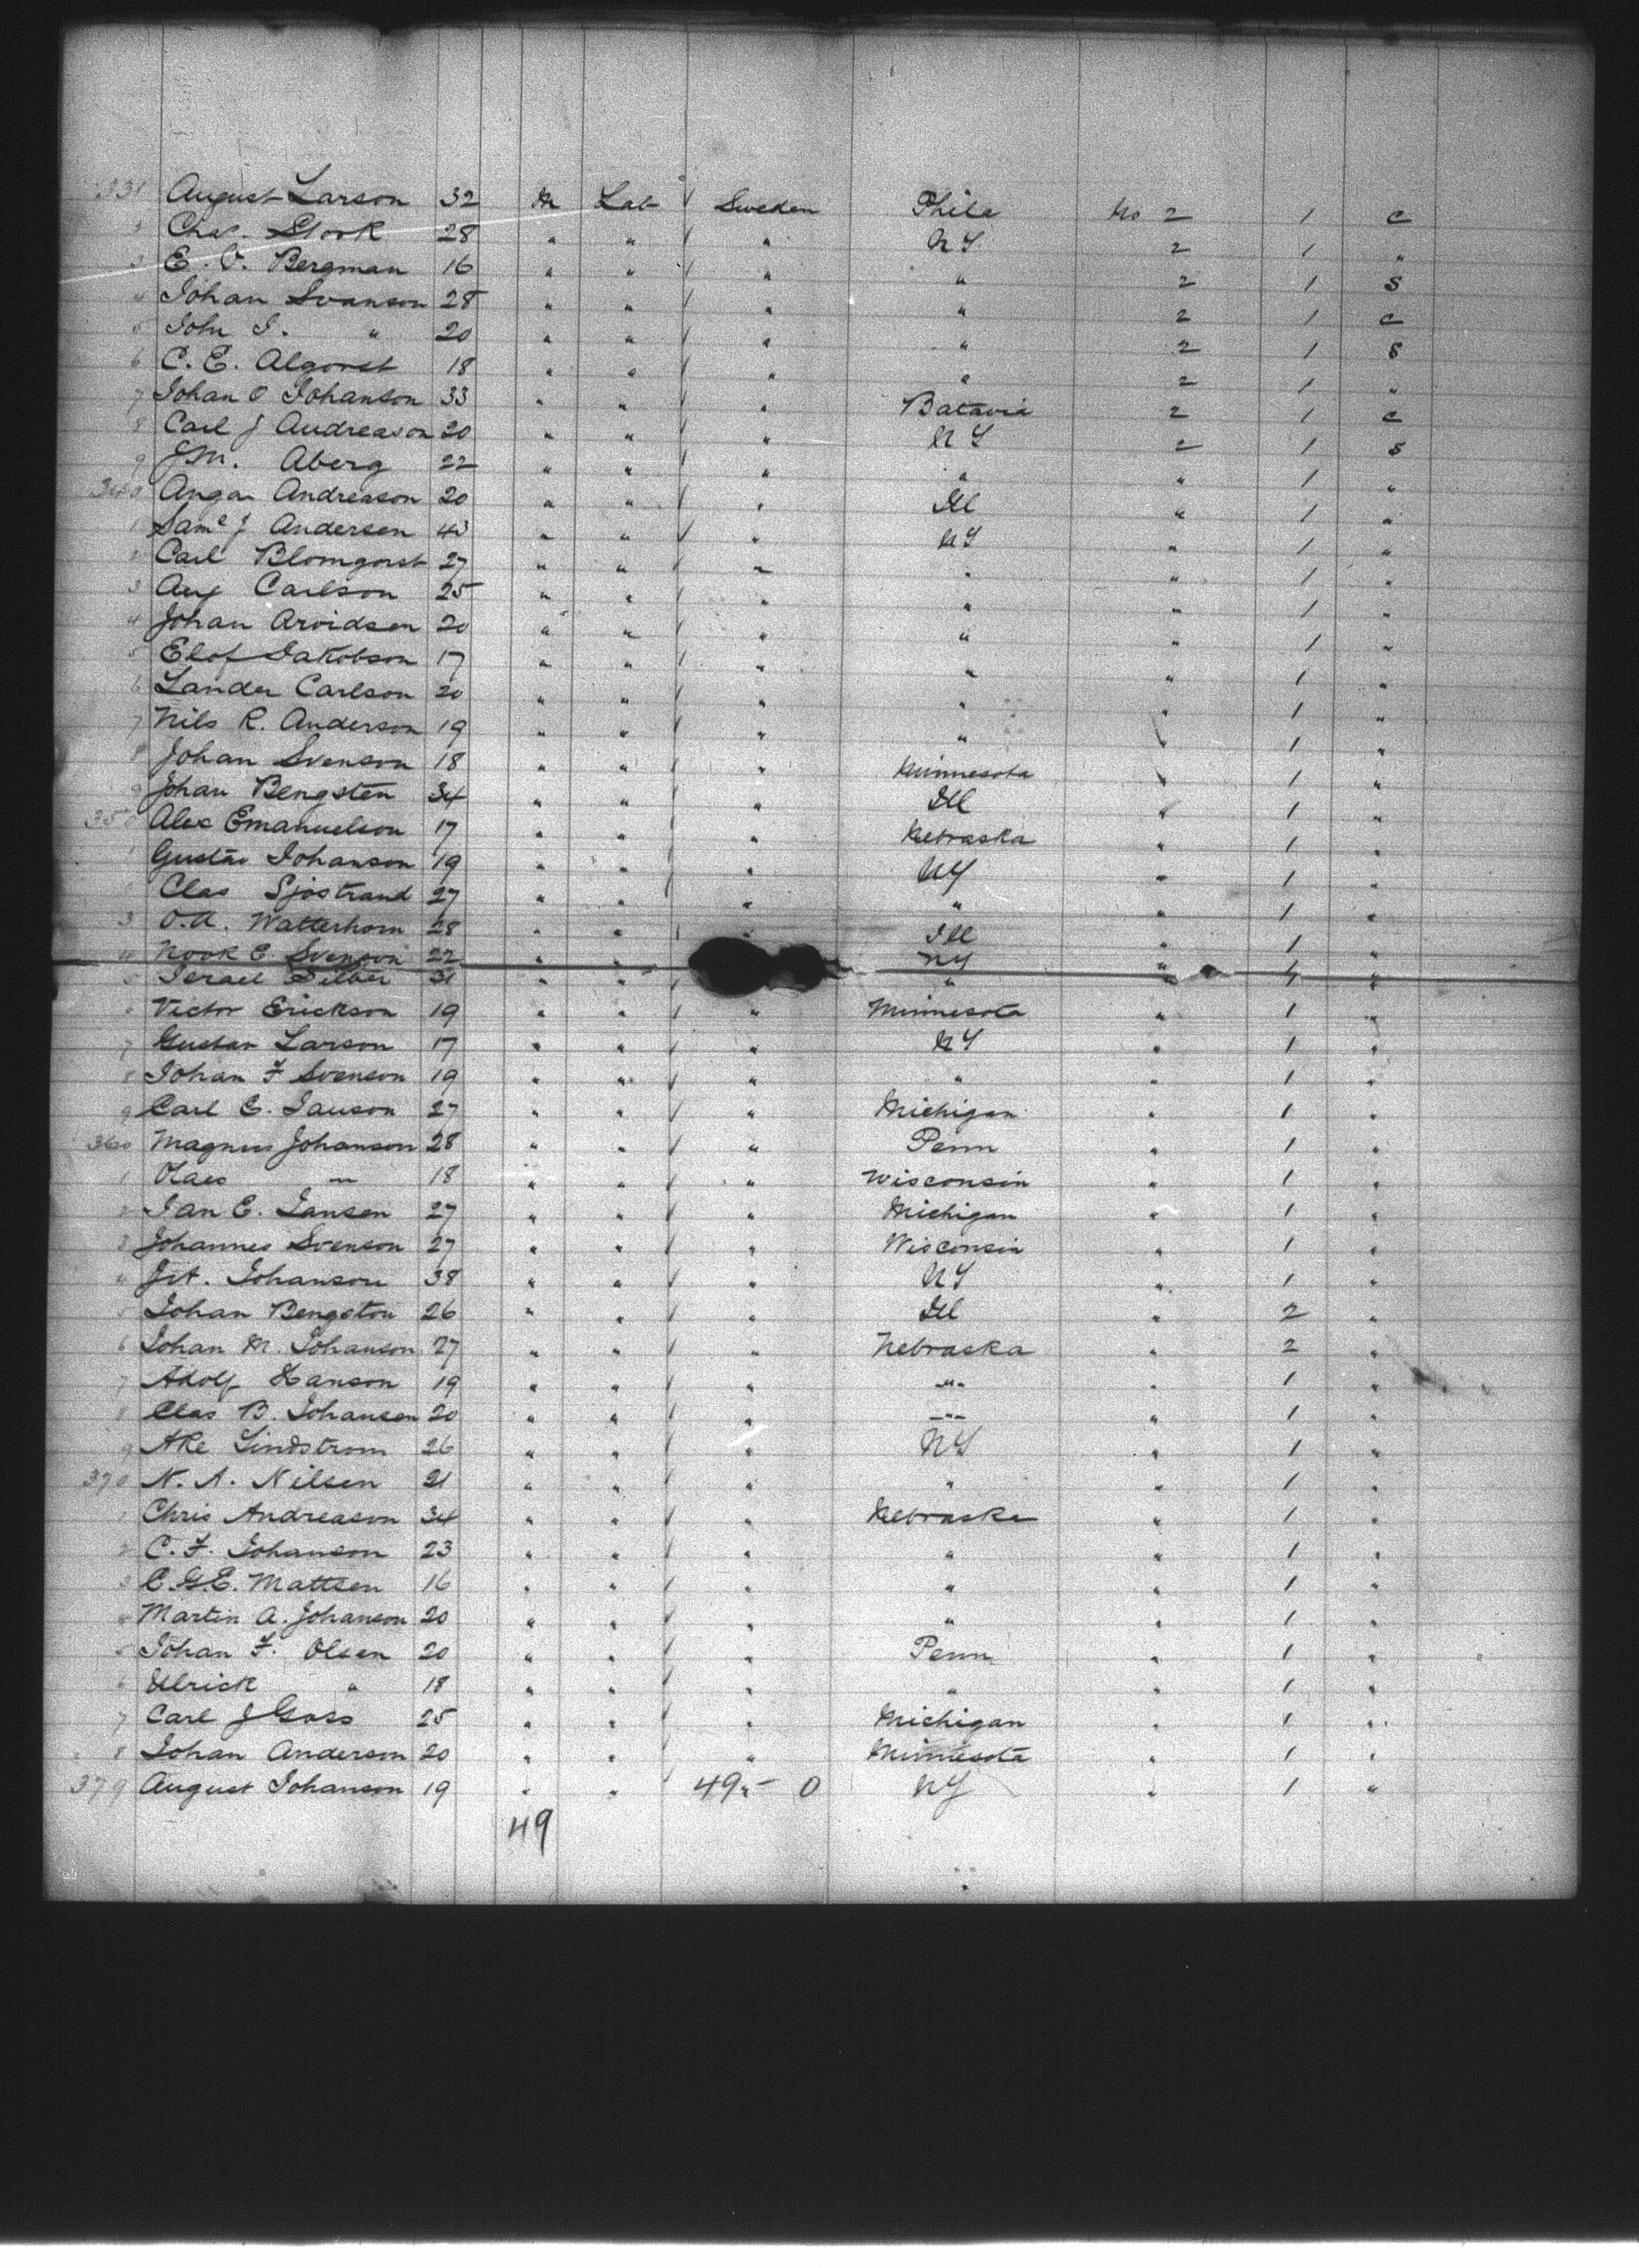 331 August Larson 32 M Lab / Sweden Phila No 2 1 c
2 Chas. Stook 28 " " / " NY 2 1 "
3 E. O. Bergman 16 " " / " " 2 1 S
4 Johan Svanson 28 " " / " " 2 1 c
5 John J. " 20 " " / " " 2 1 S
6 C. E. Algorst 18 " " / " " 2 1 "
7 Johan O Johanson 33 " " / " Batavia 2 1 c
8 Carl J Andreason 20 " " / " NY 2 1 S
9 J.M. Aberg 22 " " / " " " 1 "
340 Andreason 20 " " / " Ill " 1 "
1 Saml J Andersen 43 " " / " NY " 1 "
2 Carl Blomgorst 27 " " / " " " 1 "
3 Aug Carlson 25 " " / " " " 1 "
4 Johan Arvidsen 20 " " / " " " 1 "
5 Elof Jakobson 17 " " / " " " 1 "
6 Lander Carlson 20 " " / " " " 1 "
7 Nils R. Anderson 19 " " / " " " 1 "
8 Johan Svenson 18 " " / " Minnesota " 1 "
9 Johan Bengsten 34 " " / " Ill " 1 "
350 Alex Emanuelson 17 " " / " Nebraska " 1 "
1 Gustav Johanson 19 " " / " NY " 1 "
2 Clas Sjostrand 27 " " / " " " 1 "
3 O.A. Watterhorn 28 " " / " Ill " 1 "
4 E. Svenson 22 " " NY " 1 "
5 Israel 31 " " / " " "
6 Victor Erickson 19 " " / " Minnesota " 1 "
7 Gustav Larson 17 " " / " NY " 1 "
8 Johan F Svenson 19 " " / " " " 1 "
9 Carl E. Janson 27 " " / " Michigan " 1 "
360 Magnus Johanson 28 " " / " Penn " 1 "
1 " 18 " " / " Wisconsin " 1 "
2 Jan E. Jansen 27 " " / " Michigan " 1 "
3 Johannes Svenson 27 " " / " Wisconsin " 1 "
4 Johanson 38 " " / " NY " 1 "
5 Johan Bengston 26 " " / " Ill " 2 "
6 Johan M. Johanson 27 " " / " Nebraska " 2 "
7 Adolf Hanson 19 " " / " " " 1 "
8 Clas B. Johansen 20 " " / " " " 1 "
9 Ake Lindstrom 26 " " / " NY " 1 "
370 N. A. Nilsen 21 " " / " " " 1 "
1 Chris Andreason 34 " " / " Nebraska " 1 "
2 C. F. Johanson 23 " " / " " " 1 "
3 C.G.E. Mattsen 16 " " / " " " 1 "
4 Martin A. Johanson 20 " " / " " " 1 "
5 Johan F. Olsen 20 " " / " Penn " 1 "
6 Ulrick " 18 " " / " " " 1 "
7 Carl J Goss 25 " " / " Michigan " 1 "
8 Johan Anderson 20 " " / " Minnesota " 1 "
379 August Johanson 19 " " 49 " - 0 NY " 1 "
49